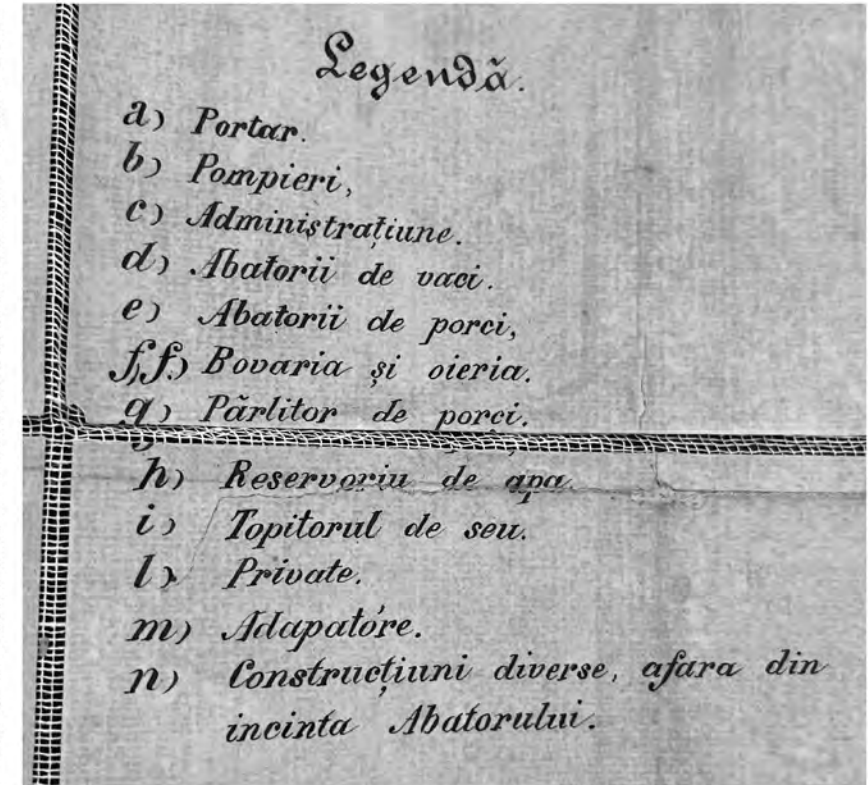 Legendă.
a) Portar.
b) Pompieri,
c) Administrațiune.
d) Abatorii de vaci.
e) Abatorii de porci,
f,f.) Bovaria și oieria.
g) Pârlitor de porci.
h) Reservoriu de apa.
i) Topitorul de seu.
l) Private.
m) Adapatóre.
n) Construcțiuni diverse, afara din
incinta Abatorului.